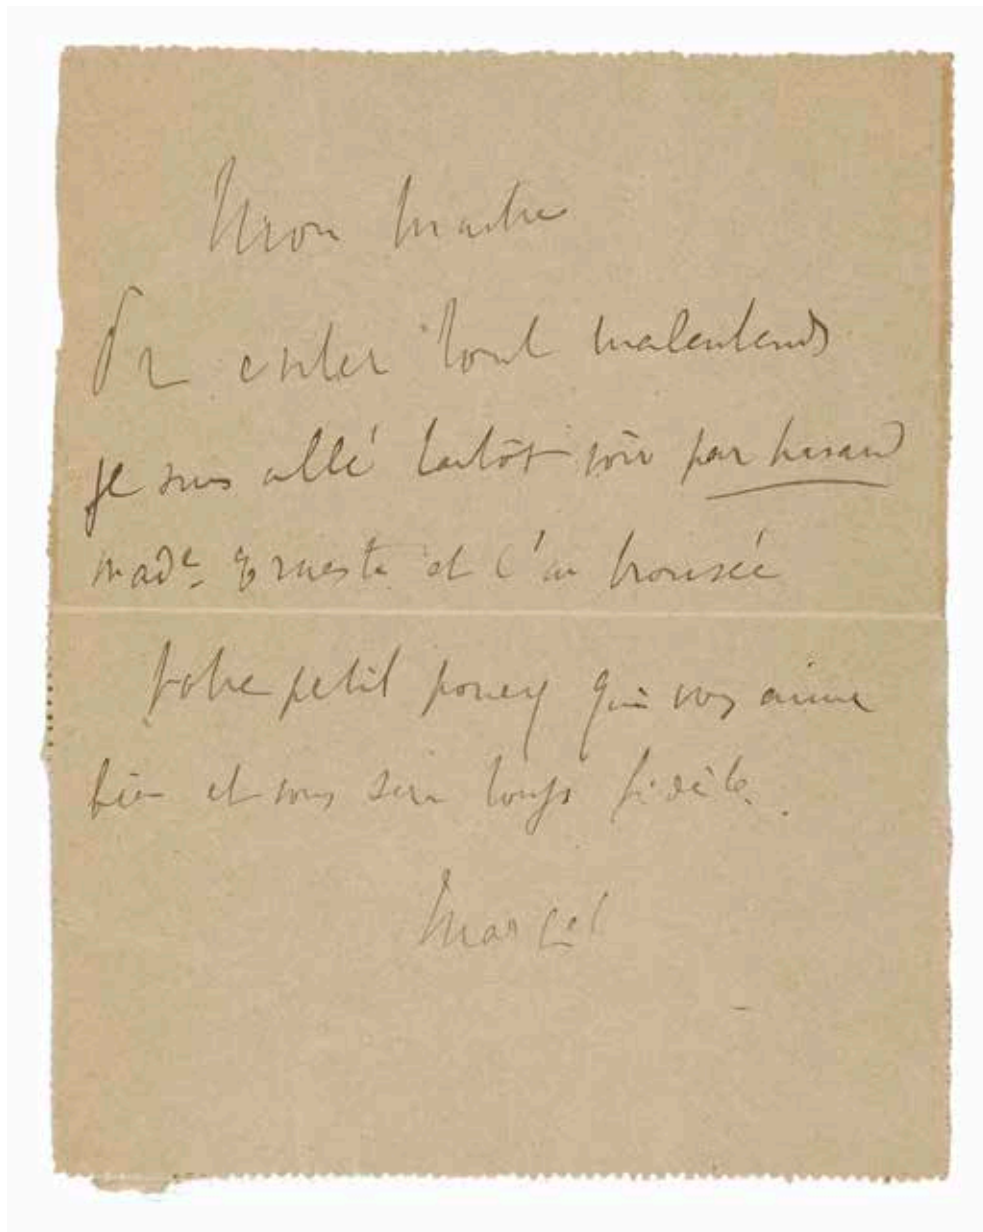 Mon maitre
Pr eviter tout malentendu
je suis allé tantôt voir par hasard
Made Ernesta et l'ai trouvée
Votre petit poney qui vous aime
bien et vous sera toujs fidèle.
Marcel